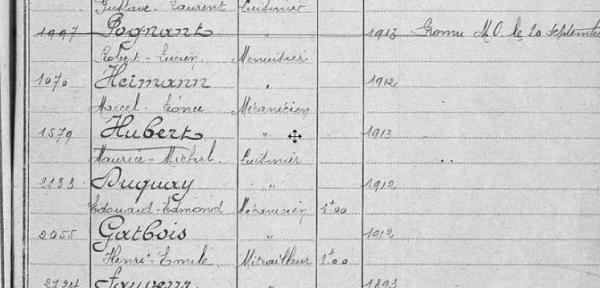 Gustave - Laurent Cuisinier
1997 Pognant 1913 Promu M.O. le 20 septembre
Robert - Lucien, Menuisier
1070 Heimann " 1912
Marcel - Léonce Mécanicien
1579 Hubert " 1913
Maurice - Michel. Cuisinier
2133 Duguay " 1912
Edouard - Edmond Mécanicien 1f00
2055 Gatbois " 1912
Henri - Emile. Mitrailleur 1f00
1893